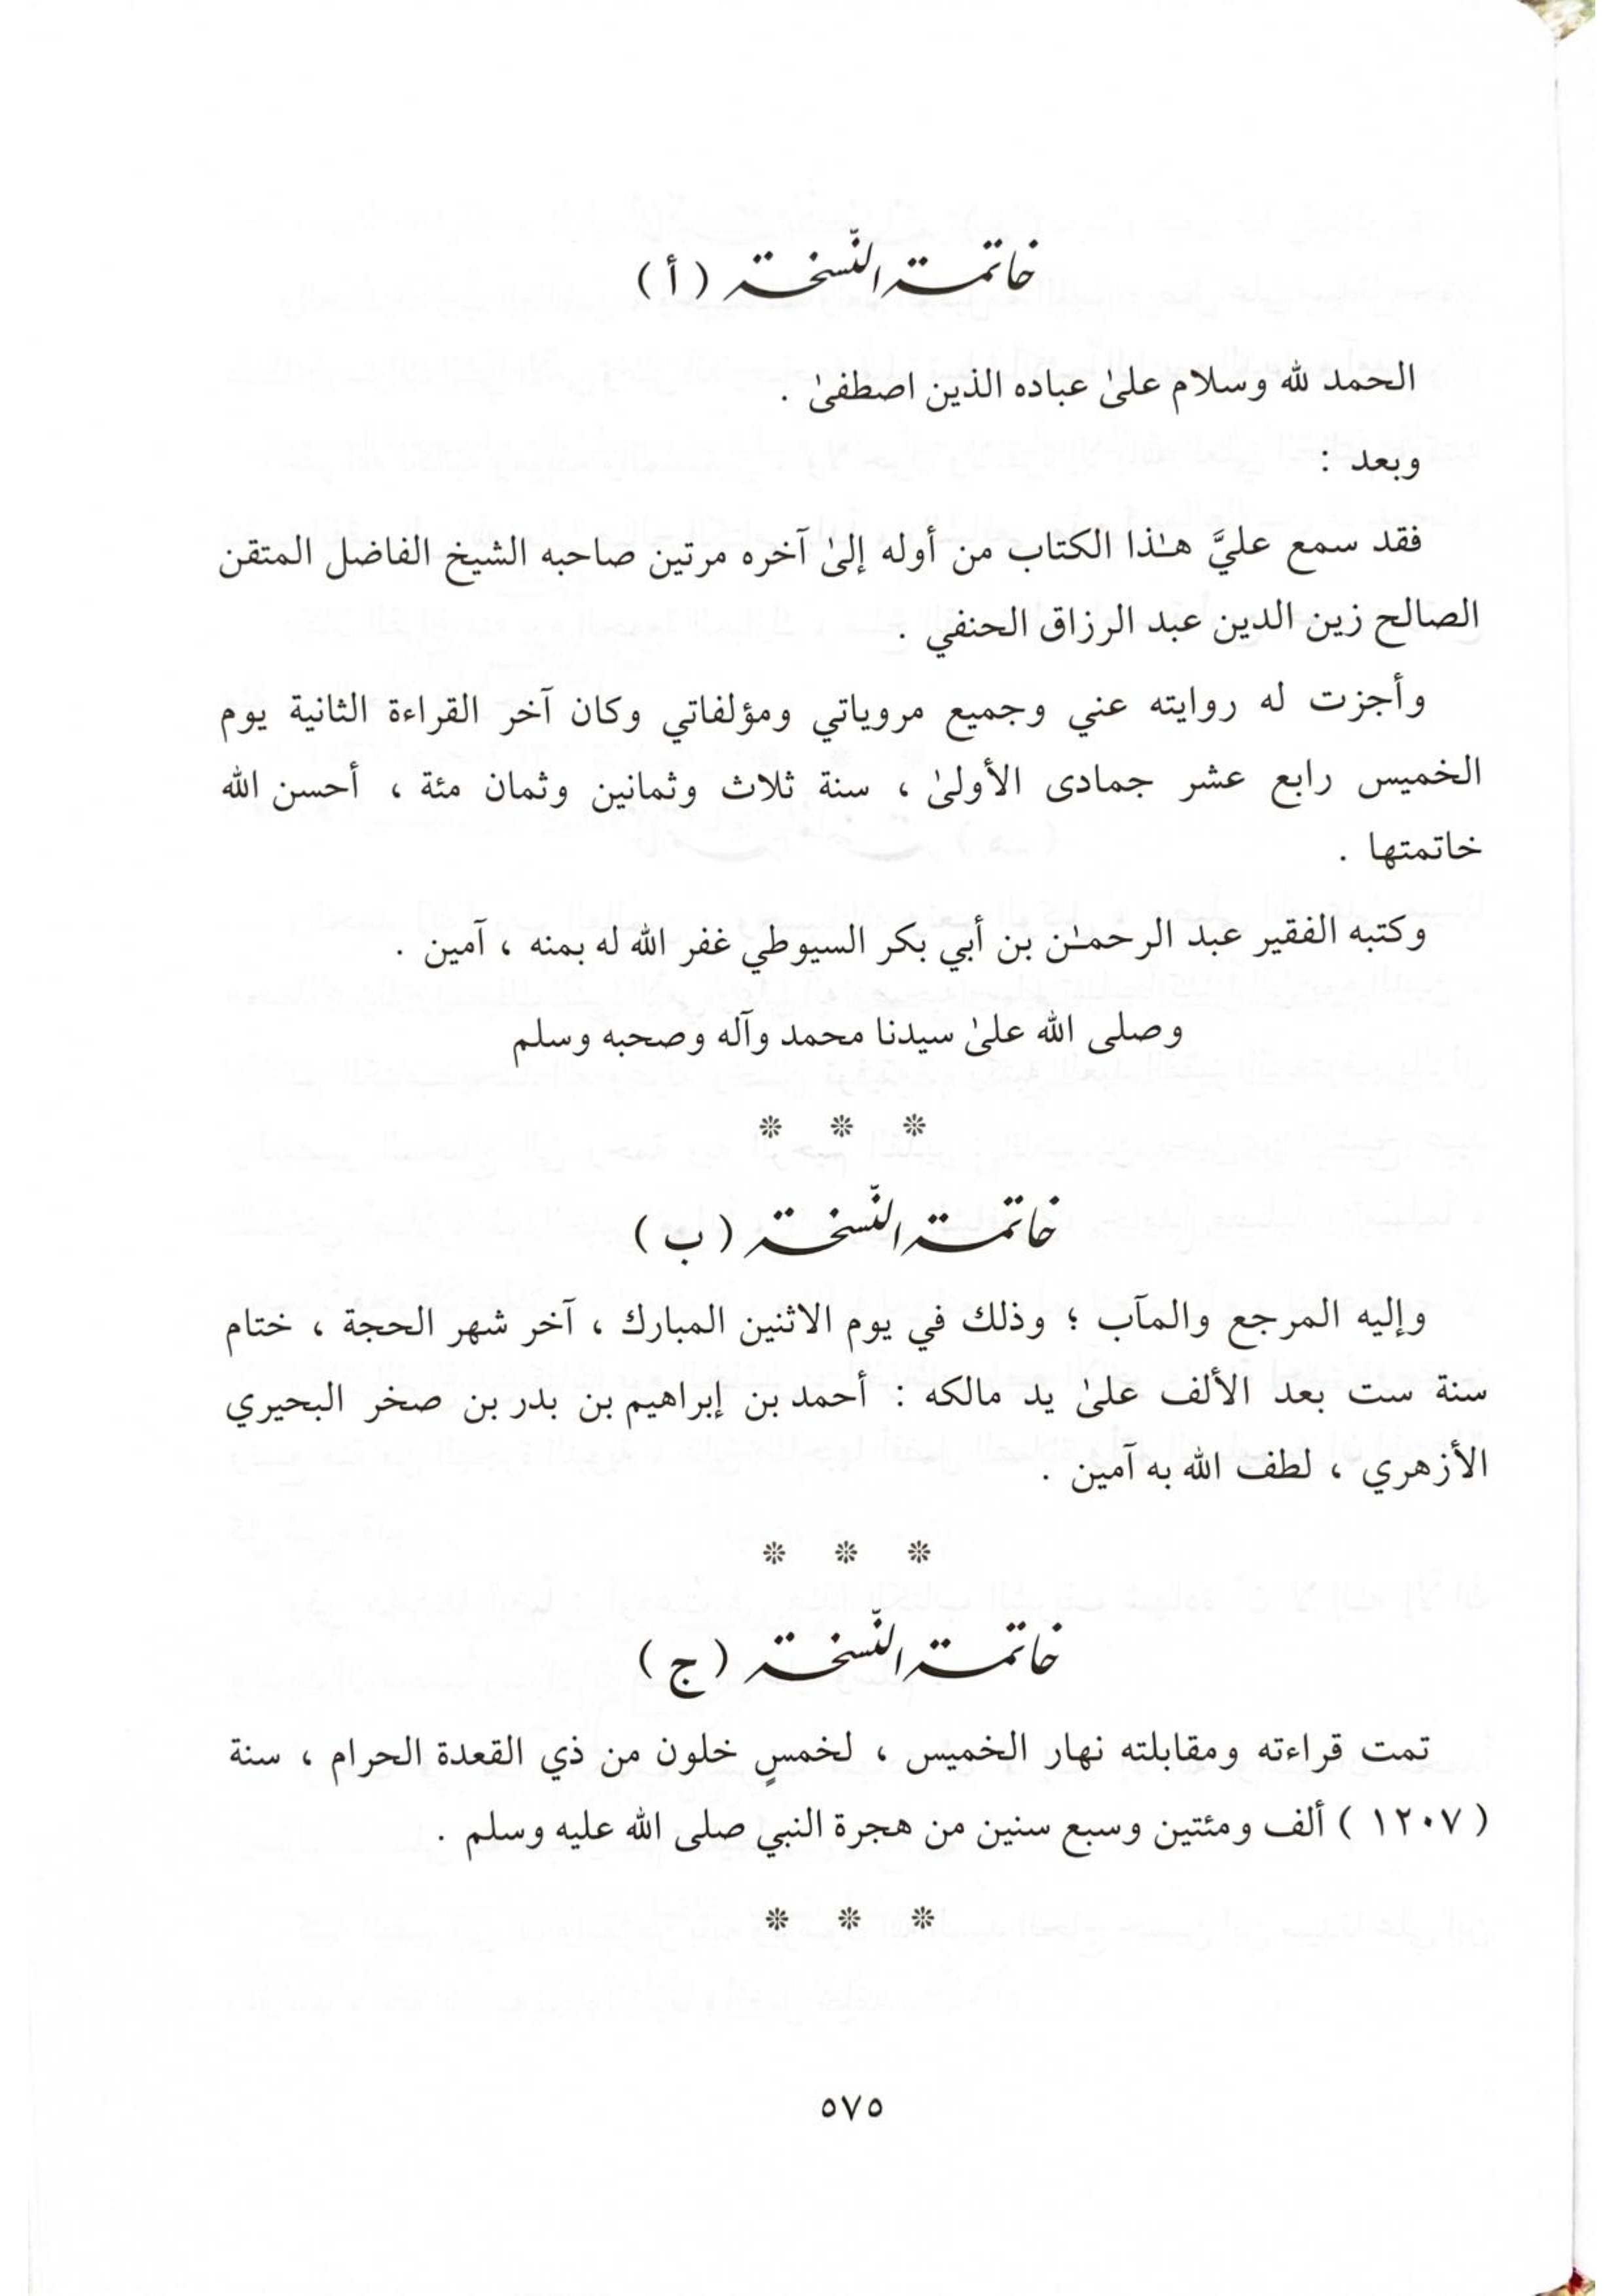 خاتمة النّسخة ( أ )
الحمد لله وسلام علىٰ عباده الذين اصطفىٰ .
وبعد :
فقد سمع عليَّ هـٰذا الكتاب من أوله إلىٰ آخره مرتين صاحبه الشيخ الفاضل المتقن
الصالح زين الدين عبد الرزاق الحنفي .
وأجزت له روايته عني وجميع مروياتي ومؤلفاتي وكان آخر القراءة الثانية يوم
الخميس رابع عشر جمادى الأولىٰ ، سنة ثلاث وثمانين وثمان مئة ، أحسن الله
خاتمتها .
وكتبه الفقير عبد الرحمـٰن بن أبي بكر السيوطي غفر الله له بمنه ، آمين .
وصلى الله علىٰ سيدنا محمد وآله وصحبه وسلم
❊ ❊ ❊
خاتمة النّسخة ( ب )
وإليه المرجع والمآب ؛ وذلك في يوم الاثنين المبارك ، آخر شهر الحجة ، ختام
سنة ست بعد الألف علىٰ يد مالكه : أحمد بن إبراهيم بن بدر بن صخر البحيري
الأزهري ، لطف الله به آمين .
❊ ❊ ❊
خاتمة النّسخة ( ج )
تمت قراءته ومقابلته نهار الخميس ، لخمسٍ خلون من ذي القعدة الحرام ، سنة
( ١٢٠٧ ) ألف ومئتين وسبع سنين من هجرة النبي صلى الله عليه وسلم .
❊ ❊ ❊
٥٧٥